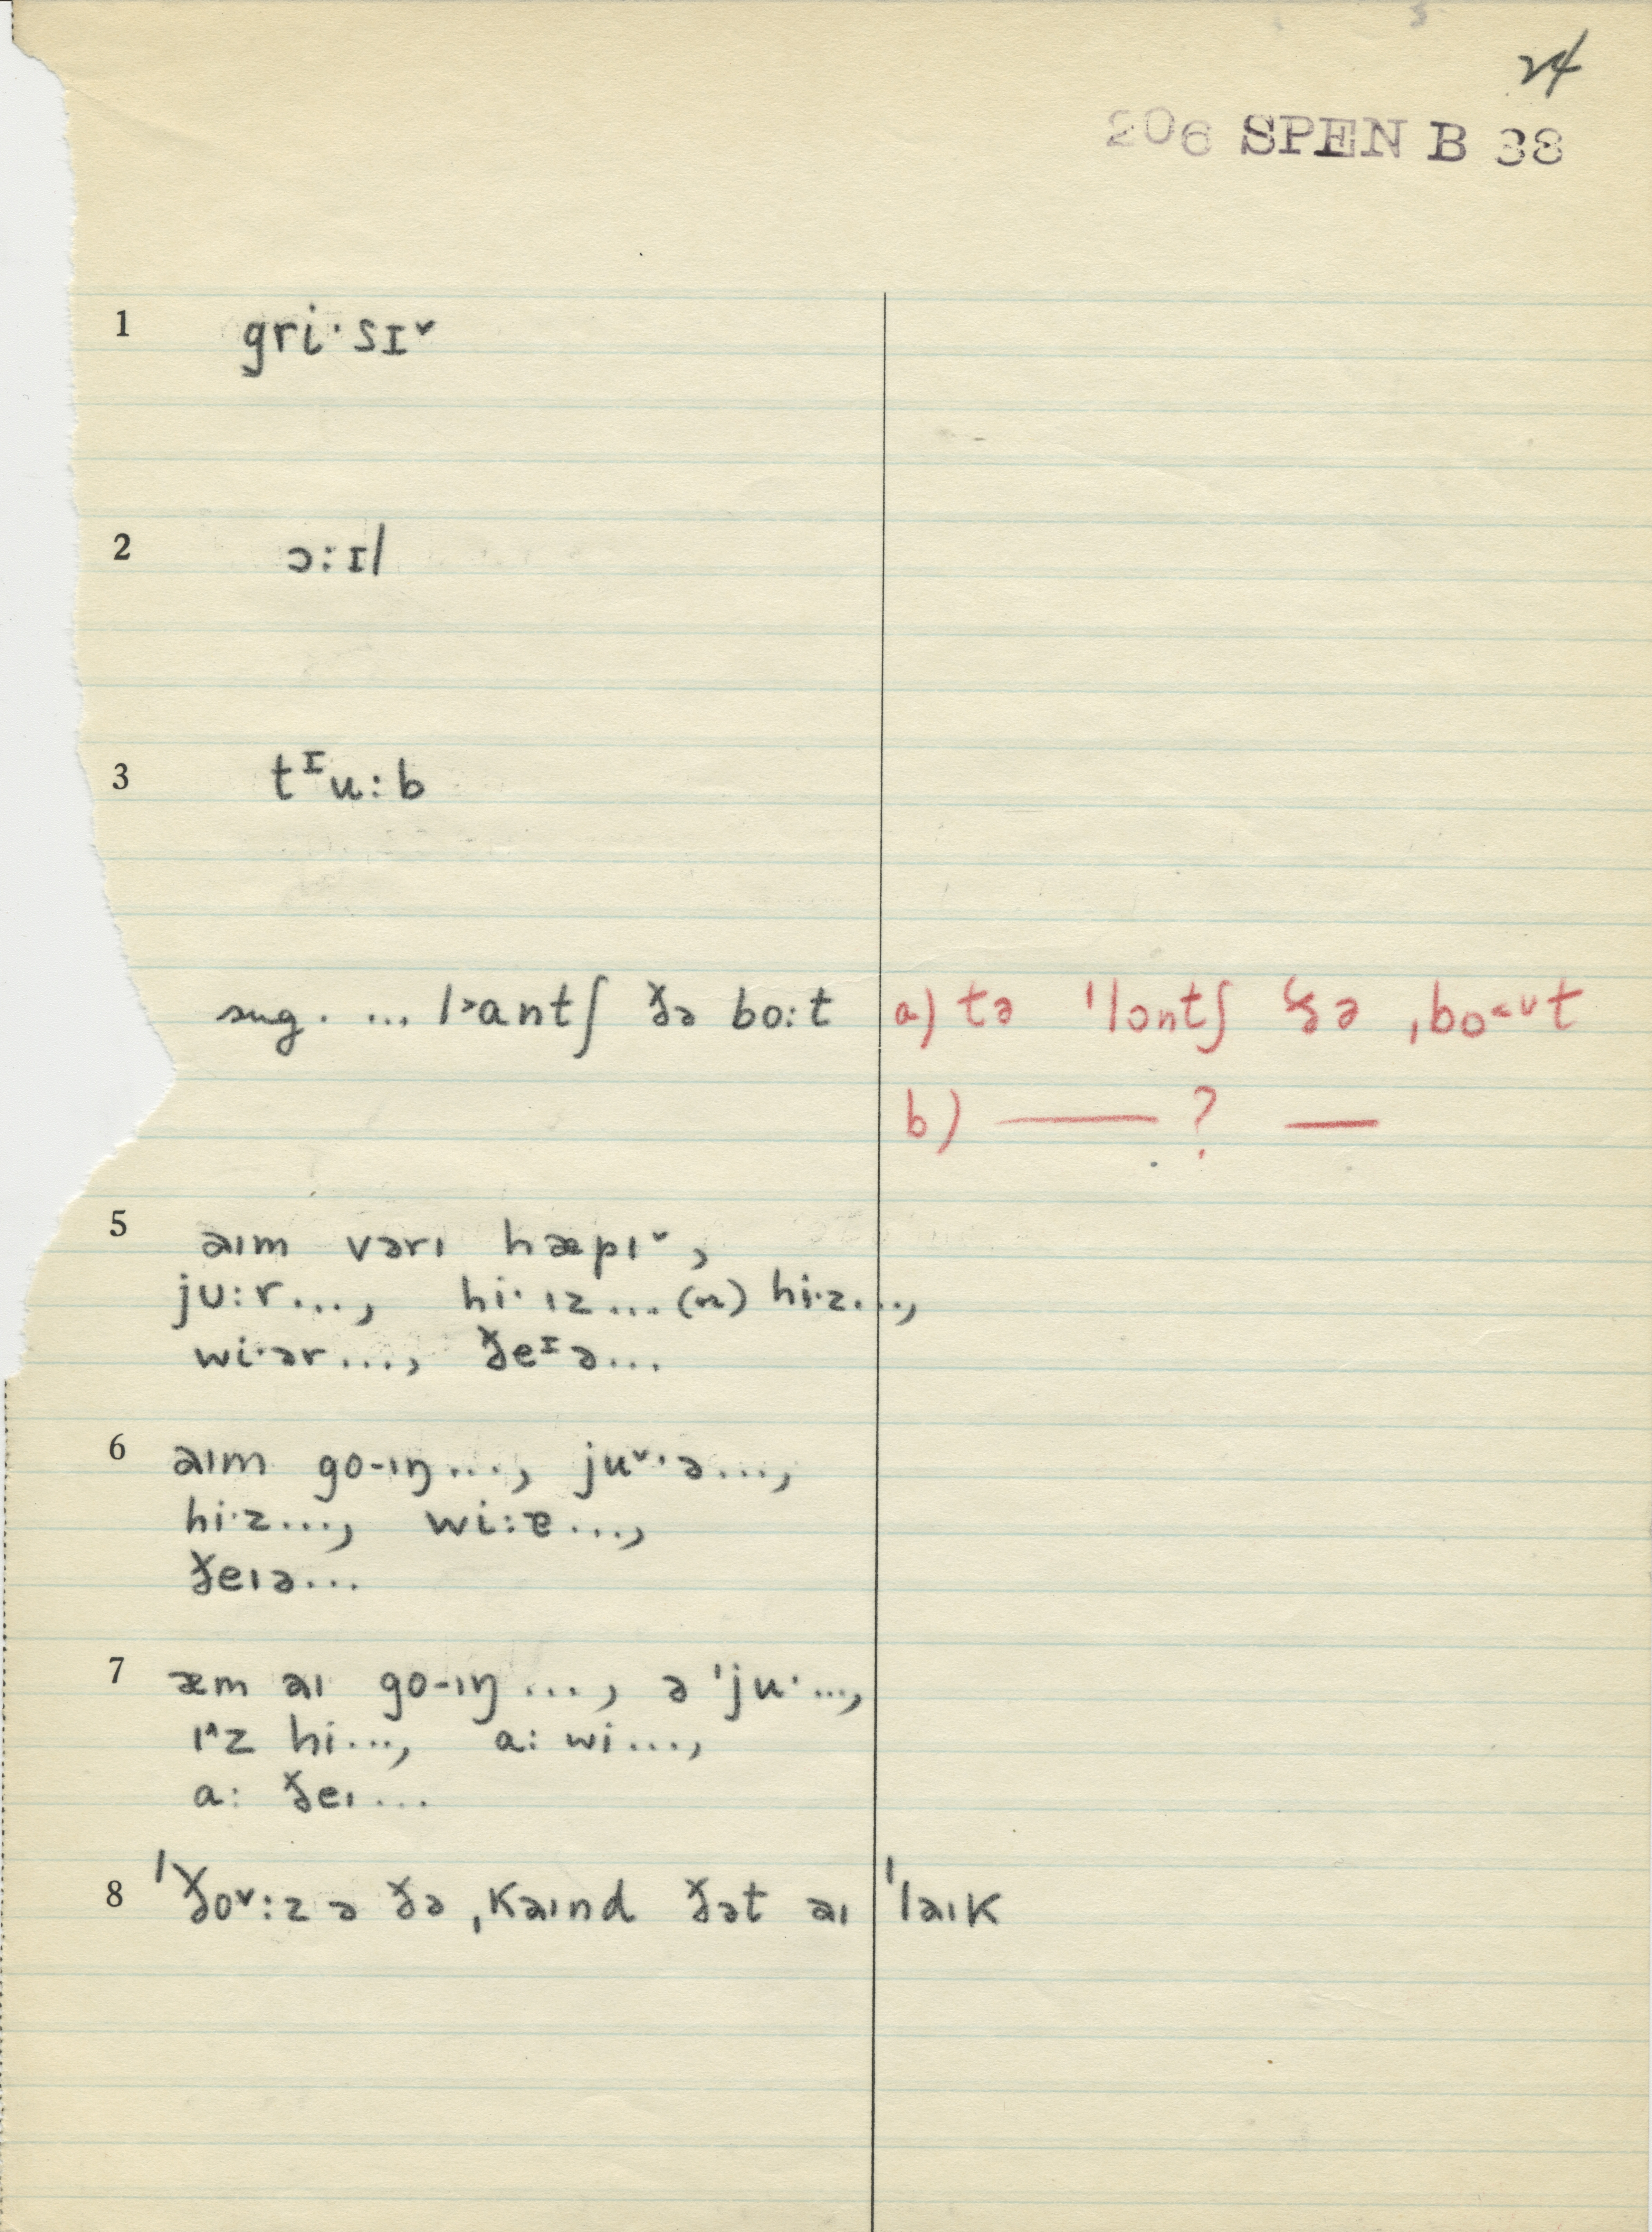 24
206 SPEN B 38
1 gri·sɪˇ
2 ɔ:ɪl
3 tᶦu:b
sug. ... l˃antʃ ðə bo:t a) tə ˈlɔntʃ ðə ˌbo˂ᴜt
b) —— ? ——
5 aɪm vərɪ hæpɪˇ,
ju:r..., hi·ɪz...(n) hi·z...,
wi·ər..., ðeᶦə...
6 aɪm go-ɪŋ..., juˇ·ə...,
hi·z..., wi:ɐ...,
ðeɪə...
7 æm aɪ go-ɪŋ..., ə ˈju·...,
ɪ^z hi..., a: wi...,
a: ðeɪ...
8 ˈðoˇ:z ə ðə ˌkaɪnd ðət aɪ ˈlaɪk